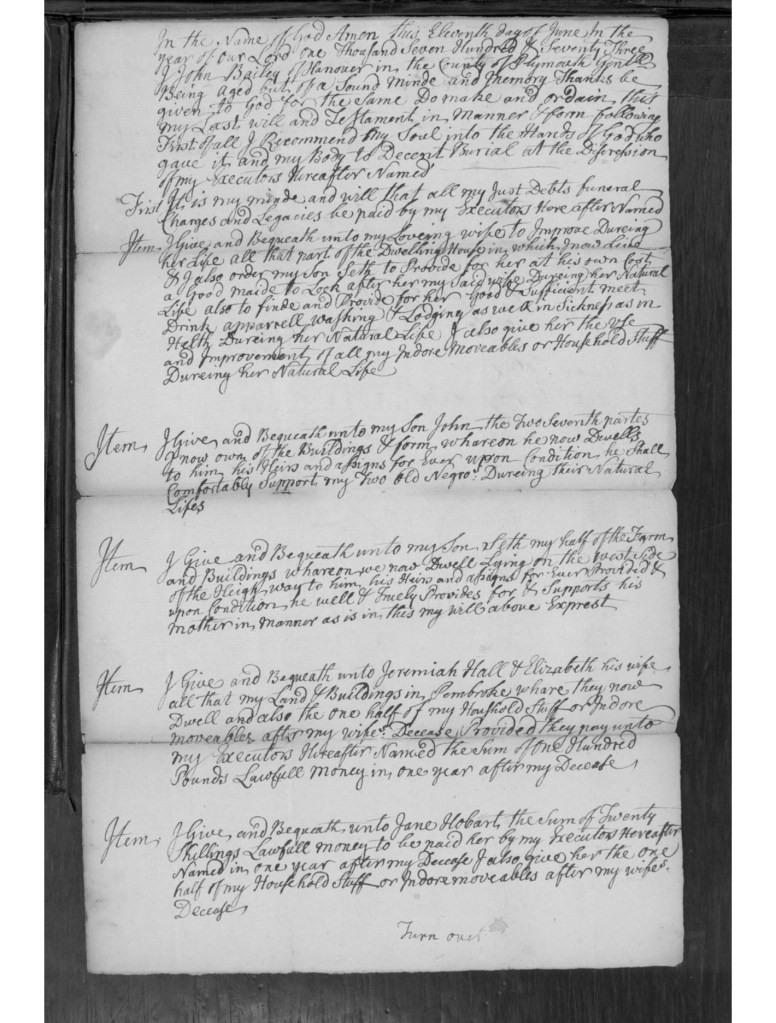 In the Name of God Amen this Eleventh day of June In the
year of our Lord one Thousand Seven Hundred & Seventy Three
I John Bailey of Hanover in the County of Plymouth Gentlm
Being aged but of a Sound Minde and Memory Thanks be
given to God for the Same Do make and ordain this
my Last will and Testament in Manner & form following
First of all I Recommend my Soul into the Hands of God who
gave it and my Body to Decent Burial at the Discression
of my Executors Hereafter Named
First It is my minde and will that all my Just Debts funeral
Charges and Legacies be paid by my Executors Here after Named
Item I Give and Bequeath unto my Loveing wife to Improve Dureing
her Life all that part of the Dwelling House in which I now Live
& I also order my Son Seth to Provide for her at his own Cost
a Good maide to Look after her my Said wife Dureing her Natural
Life also to finde and Provide for her Good & Sufficient meet
Drink apparrell washing & Lodging as well in Sickness as in
Helth Dureing her Natural Life I also give her the Use
and Improvement of all my Indore Moveables or Household Stuff
Dureing her Natural Life
Item I Give and Bequeath unto my Son John the Two Seventh partes
I now own of the Buildings & farm whareon he now Dwells
to him his Heirs and assigns for Ever upon Condition he Shall
Comfortably Support my Two old Negros Dureing their Natural
Lifes
Item I Give and Bequeath unto my Son Seth my half of the Farm
and Buildings whareon we now Dwell Lying on the West Side
of the Heigh way to him his Heirs and assigns for Ever Provided &
upon Condition he well & Timely Provides for & Supports his
mother in Manner as is in this my will above Exprest
Item I Give and Bequeath unto Jeremiah Hall & Elizabeth his wife
all that my Land & Buildings in Pembroke whare they now
Dwell and also the one half of my Household Stuff or Indore
moveables after my wifes Decease Provided they pay unto
my Executors Hereafter Named the Sum of One Hundred
Pounds Lawfull Money in one year after my Decease
Item I Give and Bequeath unto Jane Hobart the Sum of Twenty
Shillings Lawfull money to be paid her by my Executors Hereafter
Named in one year after my Decease I also Give her the one
half of my Household Stuff or Indore moveables after my wifes
Decease
Turn over